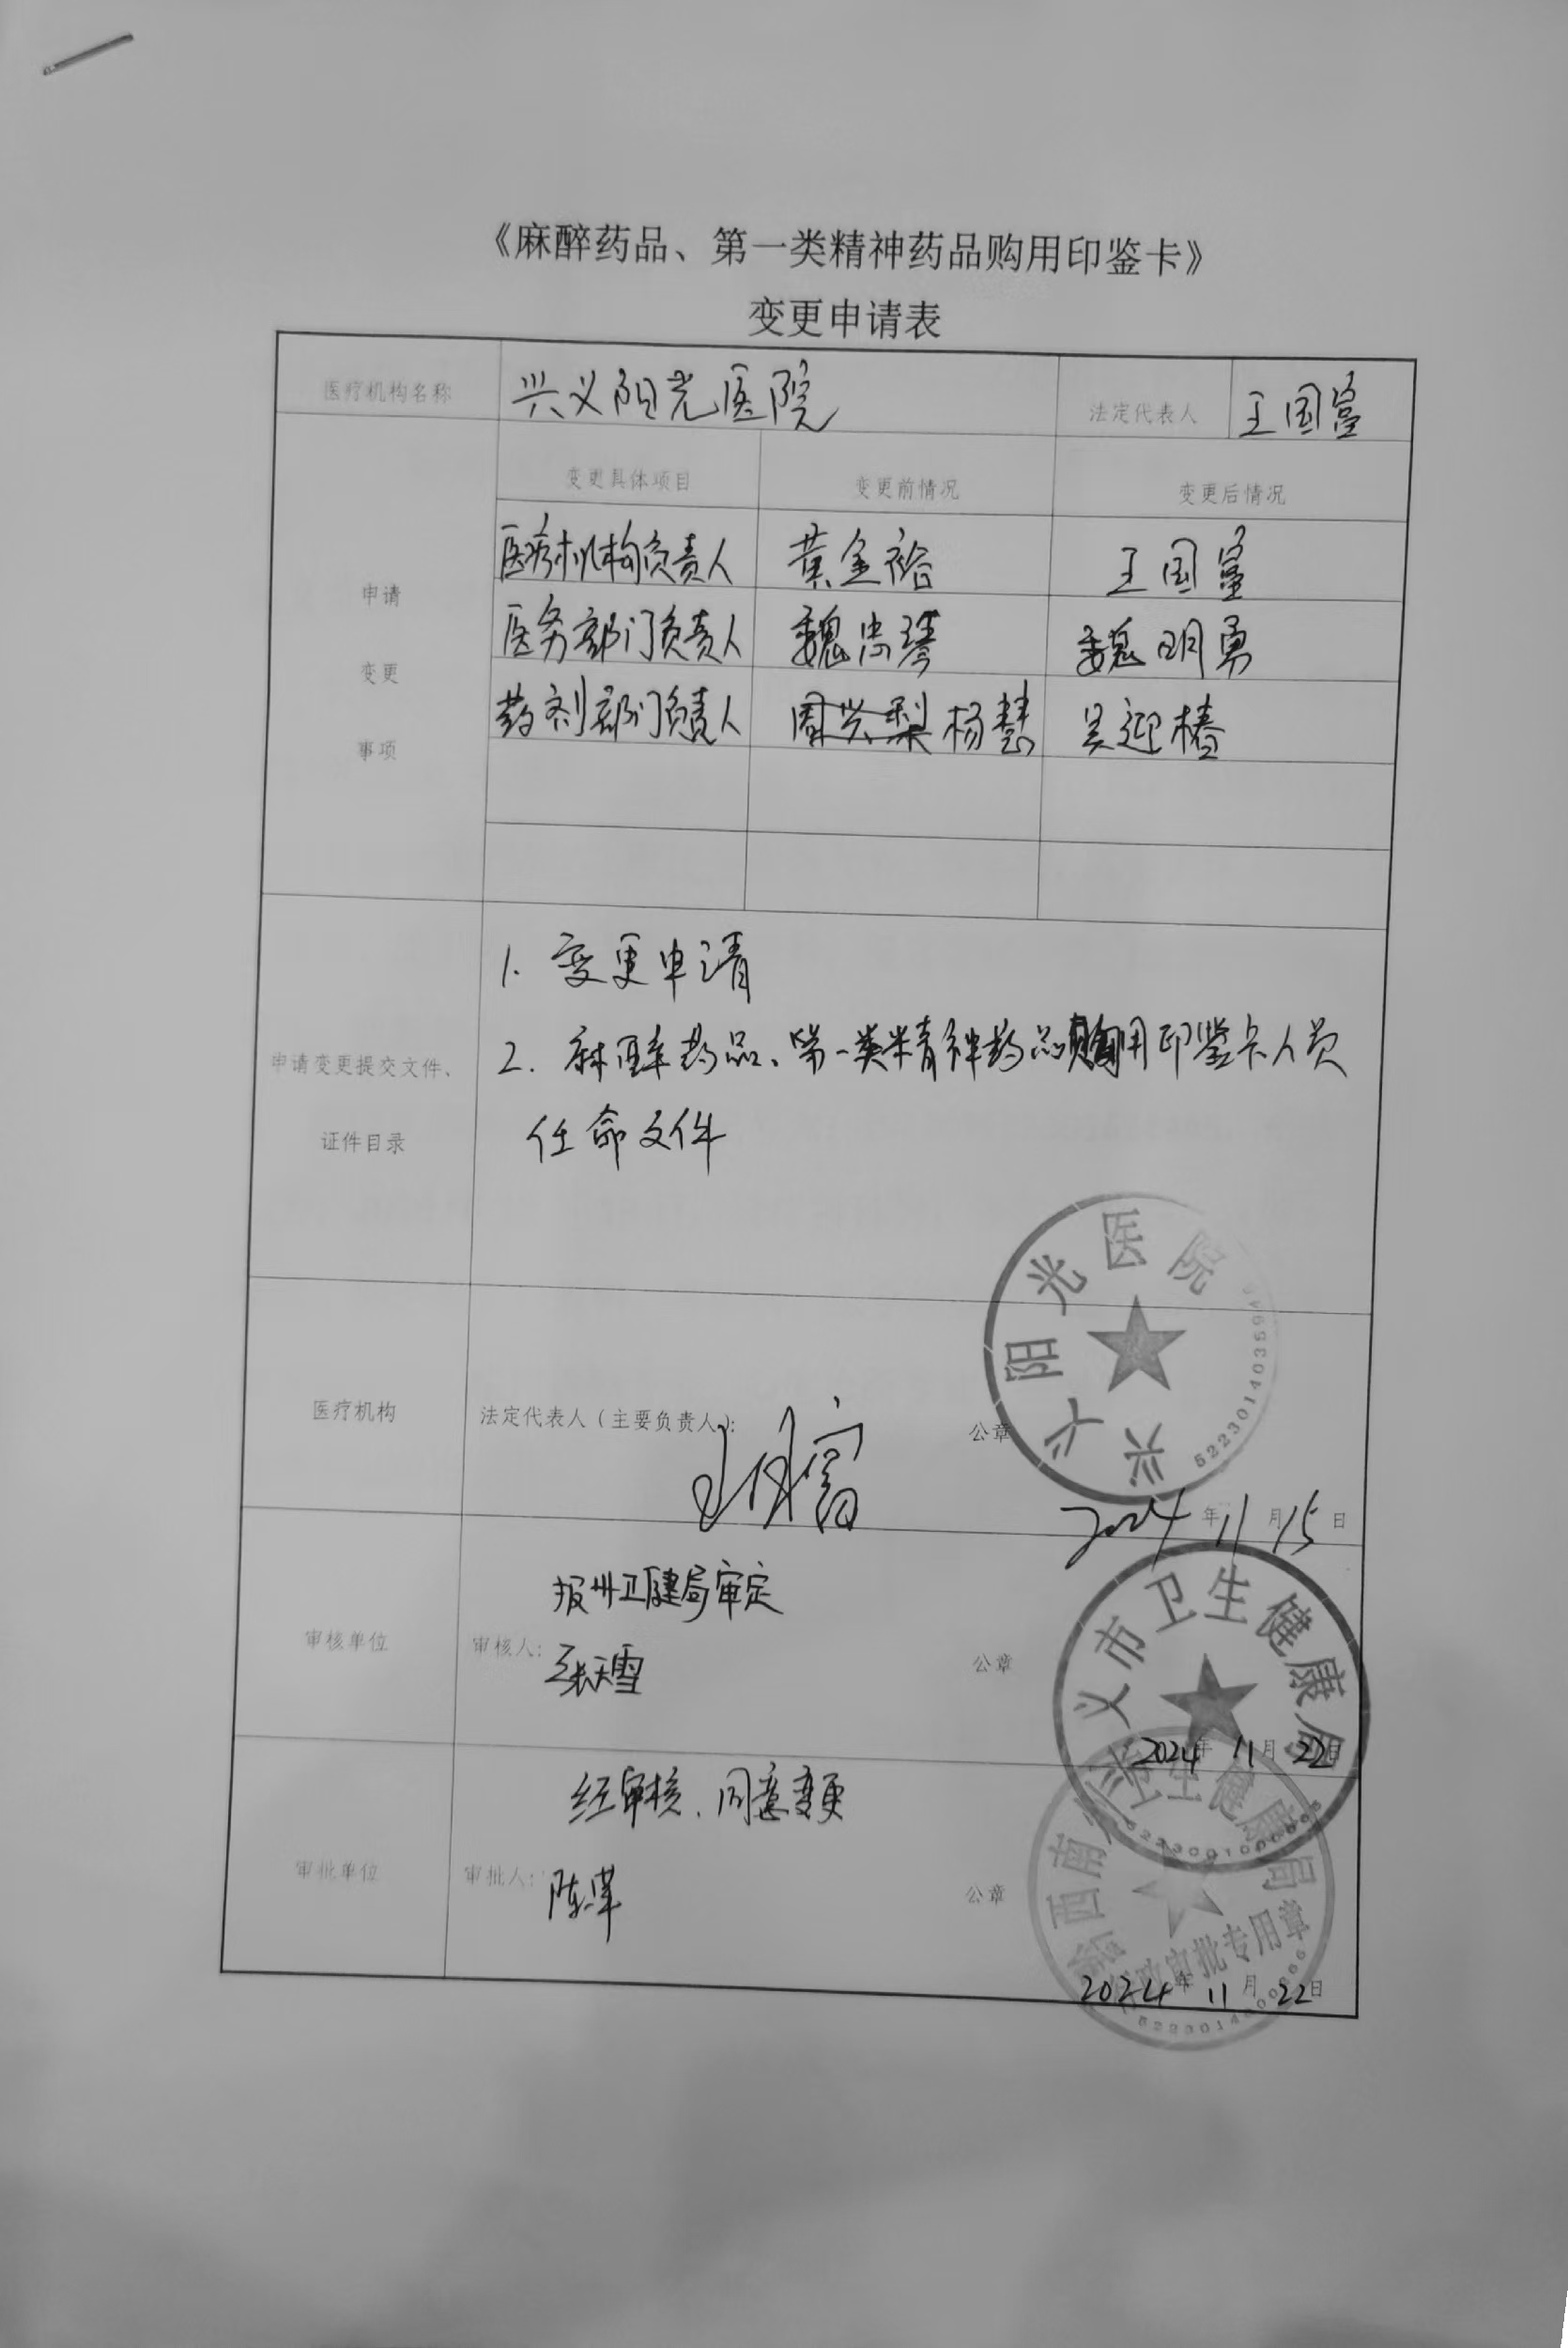 《麻醉药品、第一类精神药品购用印鉴卡》
变更申请表
医疗机构名称 兴义阳光医院 法定代表人 王国富
申请变更事项
变更具体项目 变更前情况 变更后情况
医疗机构负责人 黄金裕 王国富
医务部门负责人 魏忠琴 魏明勇
药剂部门负责人 周兴梨 杨慧 吴迎椿
申请变更提交文件、
证件目录
1. 变更申请
2. 麻醉药品、第一类精神药品购用印鉴卡人员
任命文件
兴义阳光医院
医疗机构 法定代表人（主要负责人）: 王国富 公章
2024年11月15日
报州卫健局审定
审核单位 审核人: 张天雪 公章
兴义市卫生健康局
2024年11月22日
经审核、同意变更
审批单位 审批人: 陈 公章
黔西南州卫生健康局
行政审批专用章
2024年11月22日